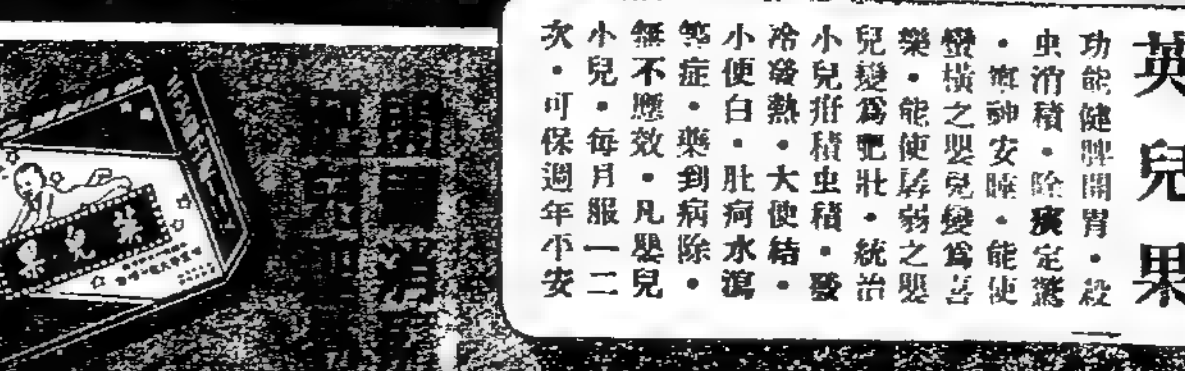 英兒果
功能健脾開胃・殺
虫消積・除痰定驚
・寧神安睡・能使
蠻橫之嬰兒變爲喜
樂・能使孱弱之嬰
兒變爲肥壯・統治
小兒疳積虫積・發
冷發熱・大便結・
小便白・肚疴水瀉
等症・藥到病除・
無不應效・凡嬰兒
小兒・每月服一二
次・可保週年平安
英兒果